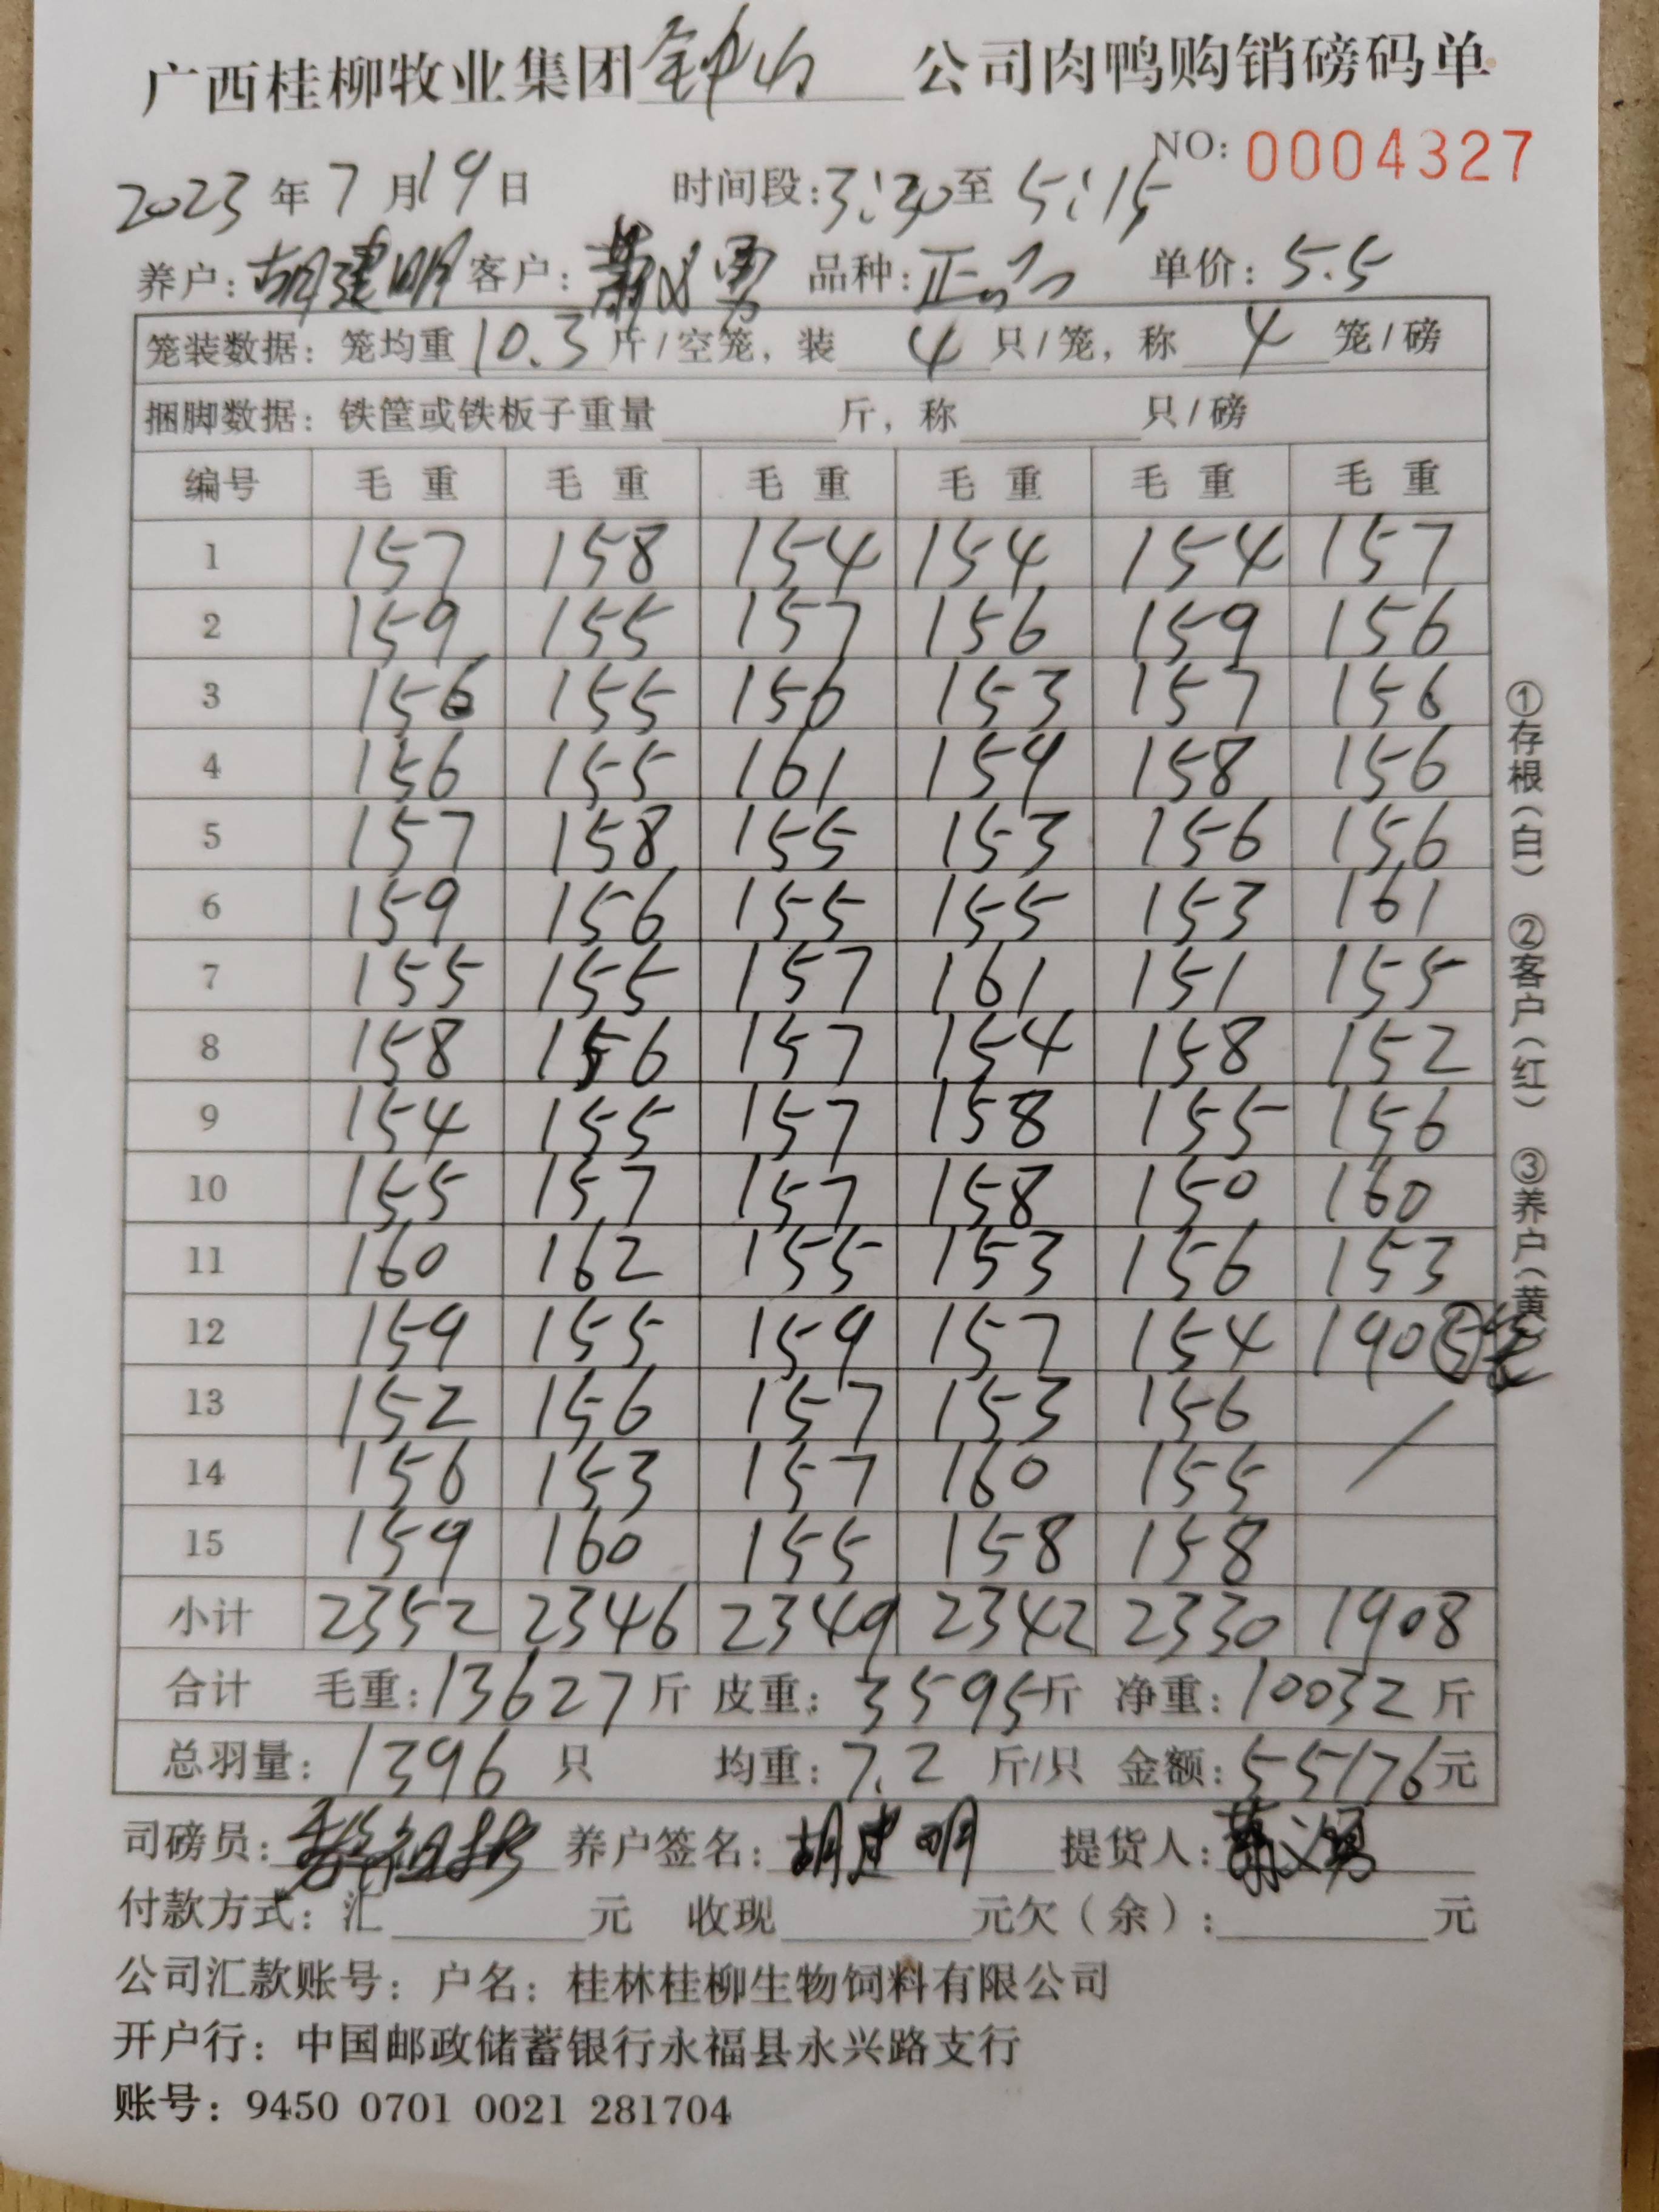 广西桂柳牧业集团钟山公司肉鸭购销磅码单
NO: 0004327
2023年7月19日 时间段:3:30至5:15
养户:胡建明 客户: 品种:正品 单价:5.5
笼装数据:笼均重10.3斤/空笼,装4只/笼,称4笼/磅
捆脚数据:铁筐或铁板子重量 斤,称 只/磅
编号 毛重 毛重 毛重 毛重 毛重 毛重
1 157 158 154 154 154 157
2 159 155 157 156 159 156
3 156 155 156 153 157 156
4 156 155 161 159 158 156
5 157 158 155 153 156 156
6 159 156 155 155 153 161
7 155 155 157 161 151 155
8 158 156 157 154 158 152
9 154 155 157 158 155 156
10 155 157 157 158 150 160
11 160 162 155 153 156 153
12 159 155 159 157 154 190⑤笼
13 152 156 157 153 156
14 156 153 157 160 155
15 159 160 155 158 158
小计 2352 2346 2349 2342 2330 1908
合计 毛重:13627斤 皮重:3595斤 净重:10032斤
总羽量:1396只 均重:7.2斤/只 金额:55176元
司磅员: 养户签名:胡建明 提货人:
付款方式:汇 元 收现 元欠(余): 元
公司汇款账号:户名:桂林桂柳生物饲料有限公司
开户行:中国邮政储蓄银行永福县永兴路支行
账号:9450 0701 0021 281704
①存根(白) ②客户(红) ③养户(黄)